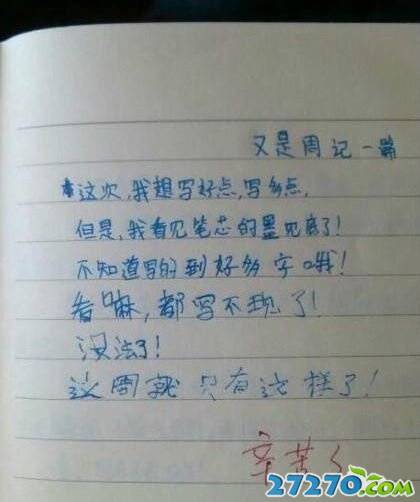 又是周记一篇
这次,我想写好点,写多点,
但是,我看见笔芯的墨见底了!
不知道写的到好多字哦!
看嘛,都写不现了!
没法了!
这周就只有这样了!
辛苦了
27270.com